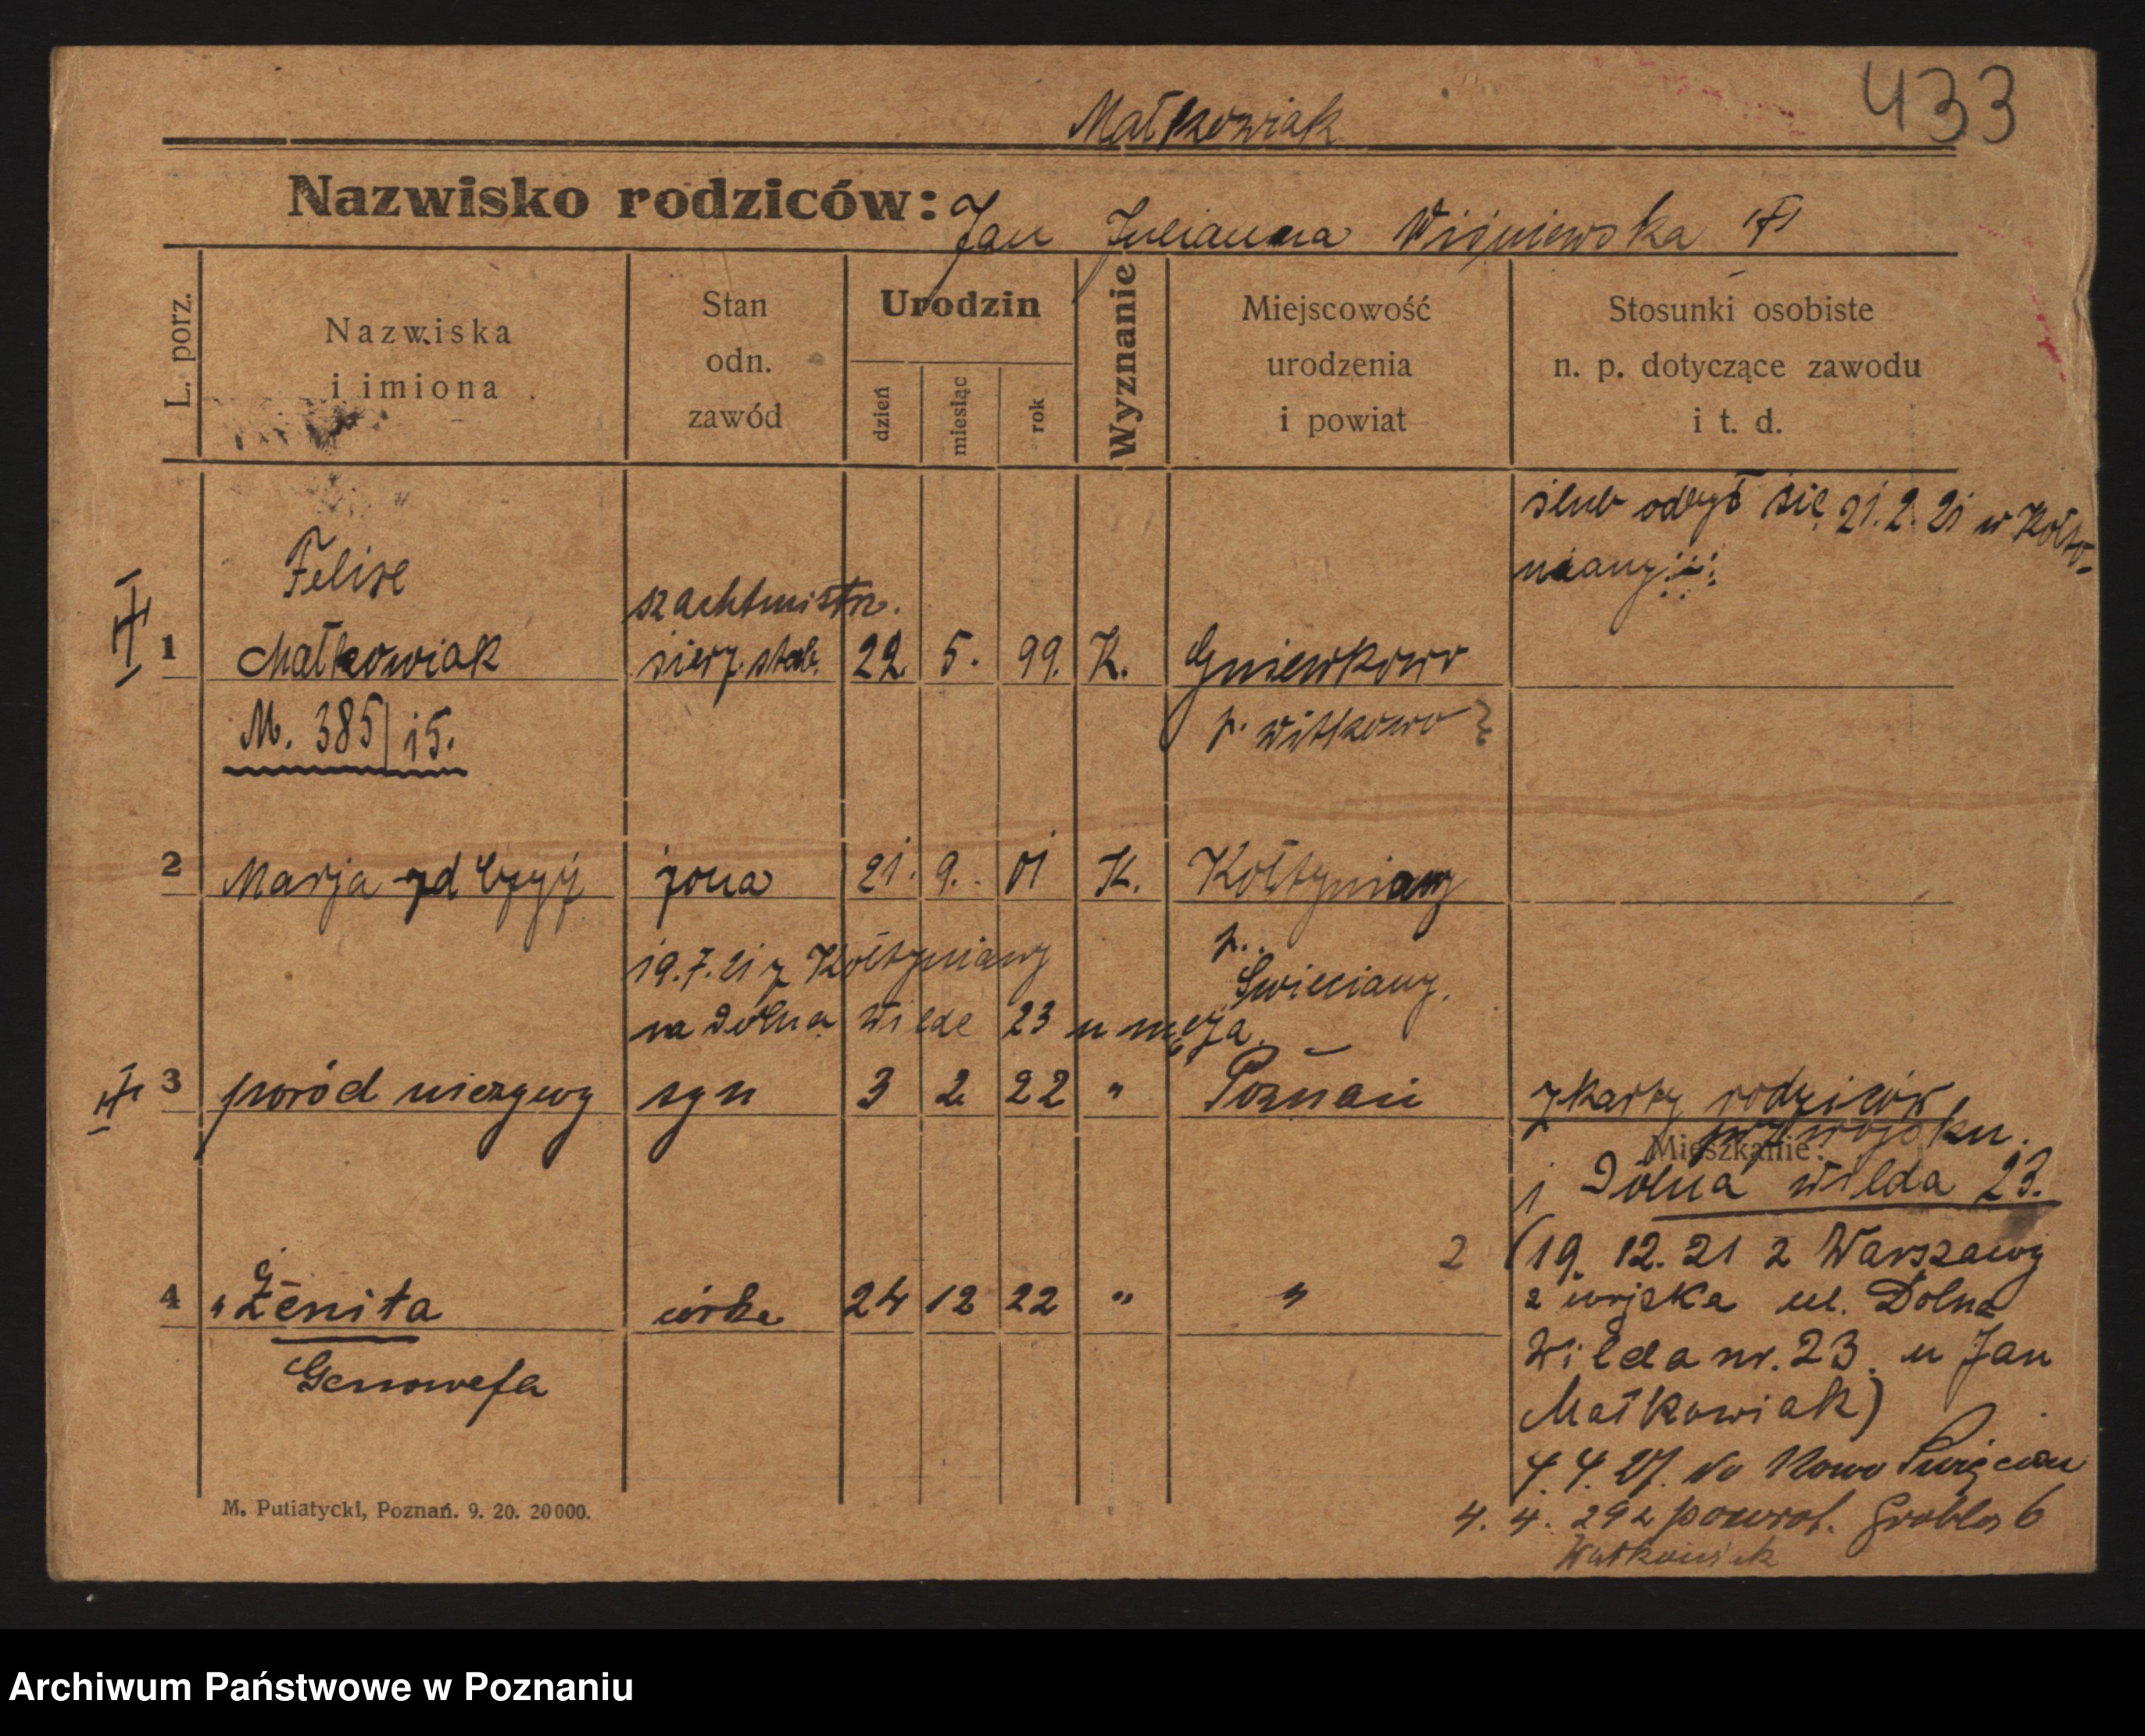 433
Małkowiak
Nazwisko rodziców: Jan Julianna Wiśniewska
L. porz.
Nazwiska
i imiona
Stan
odn.
zawód
Urodzin
dzień
miesiąc
rok
Wyznanie
Miejscowość
urodzenia
i powiat
Stosunki osobiste
n. p. dotyczące zawodu
i t. d.
ślub odbył się 21. 2. 21 w Kołty-
niany
Felix
szachtmistrz.
1 Małkowiak sierż. stab. 22. 5. 99. K. Gniewkowo
M. 385/15. p. Witkowo
2 Marja zd żona 21. 9. 01 K. Kołtyniany
p.
Swieciany.
19.7.21 z Kołtyniany
na Dolna Wilde 23 u męża.
3 poród nieżywy syn 3 2 22 " Poznań z karty rodziców
przy wojsku.
Mieszkanie:
1 Dolna Wilda 23.
2 (19. 12. 21 z Warszawy
4 " Zenita córka 24 12 22 " " z wojska ul. Dolna
Wilda nr. 23. u Jan
Genowefa
Małkowiak)
4. 4. 27. do Nowo Święcian
4. 4. 29 z powrot. Grobla 6
M. Putiatycki, Poznań. 9. 20. 20000.
Archiwum Państwowe w Poznaniu